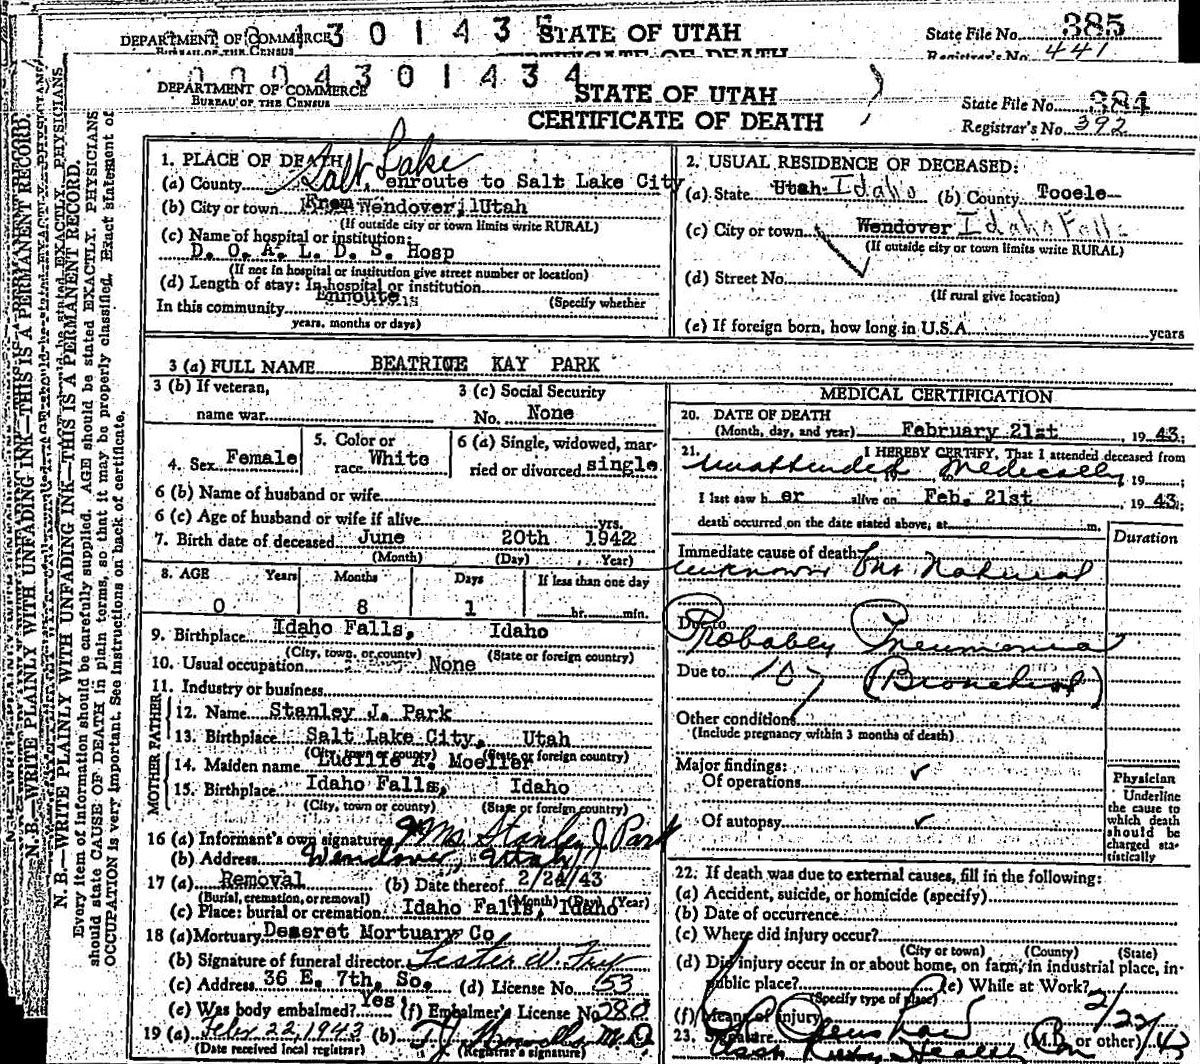 DEPARTMENT OF COMMERCE
BUREAU OF THE CENSUS
STATE OF UTAH
CERTIFICATE OF DEATH
State File No. 385
Registrar's No. 441
DEPARTMENT OF COMMERCE
BUREAU OF THE CENSUS
0004301434
STATE OF UTAH
CERTIFICATE OF DEATH
State File No. 384
Registrar's No. 392
N. B.—WRITE PLAINLY WITH UNFADING INK—THIS IS A PERMANENT RECORD.
N. B.—WRITE PLAINLY WITH UNFADING INK—THIS IS A PERMANENT RECORD.
Every item of information should be carefully supplied. AGE should be stated EXACTLY. PHYSICIANS
should state CAUSE OF DEATH in plain terms, so that it may be properly classified. Exact statement of
OCCUPATION is very important. See instructions on back of certificate.
1. PLACE OF DEATH
(a) County Salt Lake, enroute to Salt Lake City
(b) City or town From Wendover, Utah
(If outside city or town limits write RURAL)
(c) Name of hospital or institution:
D. O. A. L. D. S. Hosp
(If not in hospital or institution give street number or location)
(d) Length of stay: In hospital or institution
Enroute
In this community (Specify whether
years, months or days)
2. USUAL RESIDENCE OF DECEASED:
(a) State Utah Idaho (b) County Tooele
(c) City or town Wendover Idaho Falls
(If outside city or town limits write RURAL)
(d) Street No.
(If rural give location)
(e) If foreign born, how long in U.S.A. years
3 (a) FULL NAME BEATRICE KAY PARK
3 (b) If veteran,
name war
3 (c) Social Security
No. None
4. Sex Female
5. Color or
race White
6 (a) Single, widowed, mar-
ried or divorced single
6 (b) Name of husband or wife
6 (c) Age of husband or wife if alive yrs.
7. Birth date of deceased June 20th 1942
(Month) (Day) Year)
8. AGE Years Months Days If less than one day
0 8 1 hr. min.
9. Birthplace Idaho Falls, Idaho
(City, town, or county) (State or foreign country)
10. Usual occupation None
11. Industry or business
FATHER
12. Name Stanley J. Park
13. Birthplace Salt Lake City, Utah
(City, town or county) (State or foreign country)
MOTHER
14. Maiden name Lucille A. Moeller
15. Birthplace Idaho Falls, Idaho
(City, town or county) (State or foreign country)
16 (a) Informant's own signature Mrs Stanley J Park
(b) Address Wendover, Utah
17 (a) Removal (b) Date thereof 2/24/43
(Burial, cremation, or removal) (Month) (Day) (Year)
(c) Place: burial or cremation Idaho Falls, Idaho
18 (a) Mortuary Deseret Mortuary Co
(b) Signature of funeral director Lester W. Fry
(c) Address 36 E. 7th, So. (d) License No. 153
(e) Was body embalmed? Yes (f) Embalmer's License No 280
19 (a) Feby 22, 1943 (b) M. D.
(Date received local registrar) (Registrar's signature)
MEDICAL CERTIFICATION
20. DATE OF DEATH
(Month, day, and year) February 21st, 1943;
21. I HEREBY CERTIFY, That I attended deceased from
Unattended Medically, 19 to 19 ;
I last saw h er alive on Feb. 21st, 1943;
death occurred on the date stated above, at m.
Duration
Immediate cause of death
unknown but Natural
Due to
Probabley Pneumonia
Due to 107 (Bronchial)
Other conditions
(Include pregnancy within 3 months of death)
Major findings:
Of operations
Of autopsy
Physician
Underline
the cause to
which death
should be
charged sta-
tistically
22. If death was due to external causes, fill in the following:
(a) Accident, suicide, or homicide (specify)
(b) Date of occurrence
(c) Where did injury occur?
(City or town) (County) (State)
(d) Did injury occur in or about home, on farm, in industrial place, in
public place? (e) While at Work?
(Specify type of place)
(f) Means of injury 2/22/43
23. Signature (M.D. or other)